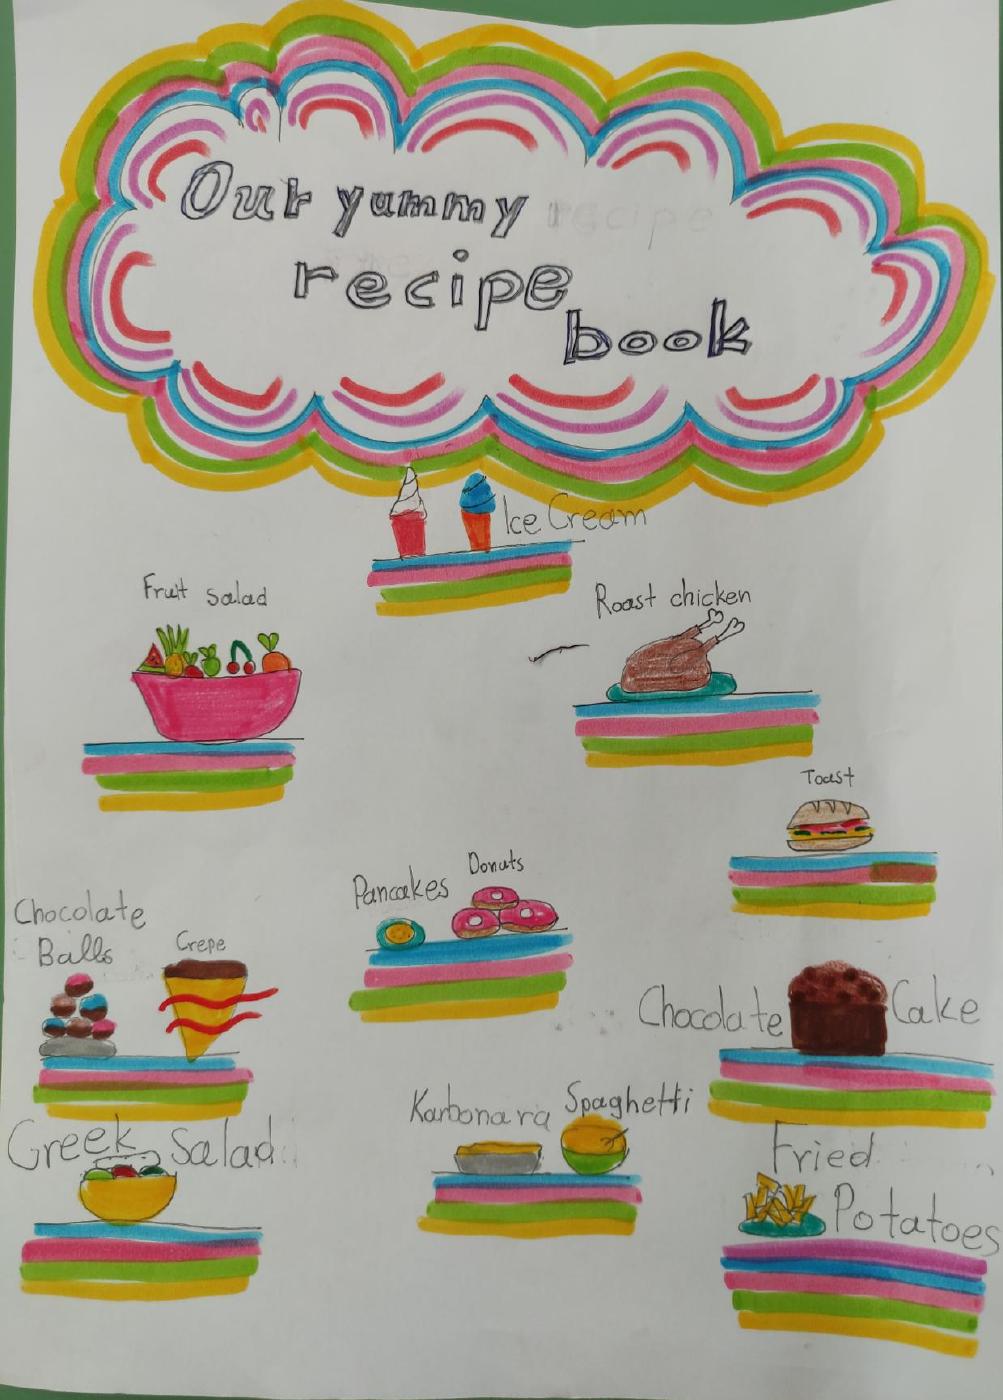 Our yummy
recipe
book
Ice Cream
Fruit salad
Roast chicken
Toast
Pancakes
Donuts
Chocolate
Balls
Crepe
Chocolate Cake
Karbonara
Spaghetti
Greek Salad
Fried
Potatoes